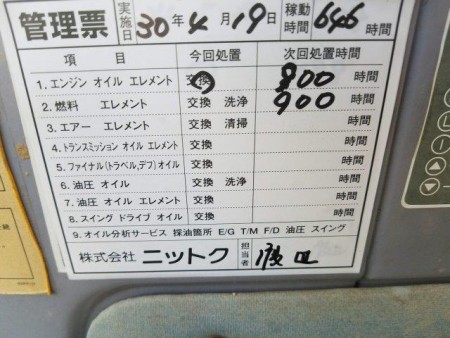 管理票 実施日 30年4月19日 稼動時間 646時間
項目 今回処置 次回処置時間
1.エンジン オイル エレメント 交換 800 時間
2.燃料 エレメント 交換 洗浄 900 時間
3.エアー エレメント 交換 清掃 時間
4.トランスミッション オイル エレメント 交換 時間
5.ファイナル(トラベル,デフ)オイル 交換 時間
6.油圧 オイル 交換 洗浄 時間
7.油圧 オイル エレメント 交換 時間
8.スイング ドライブ オイル 交換 時間
9.オイル分析サービス 採油箇所 E/G T/M F/D 油圧 スイング
株式会社 ニットク 担当者